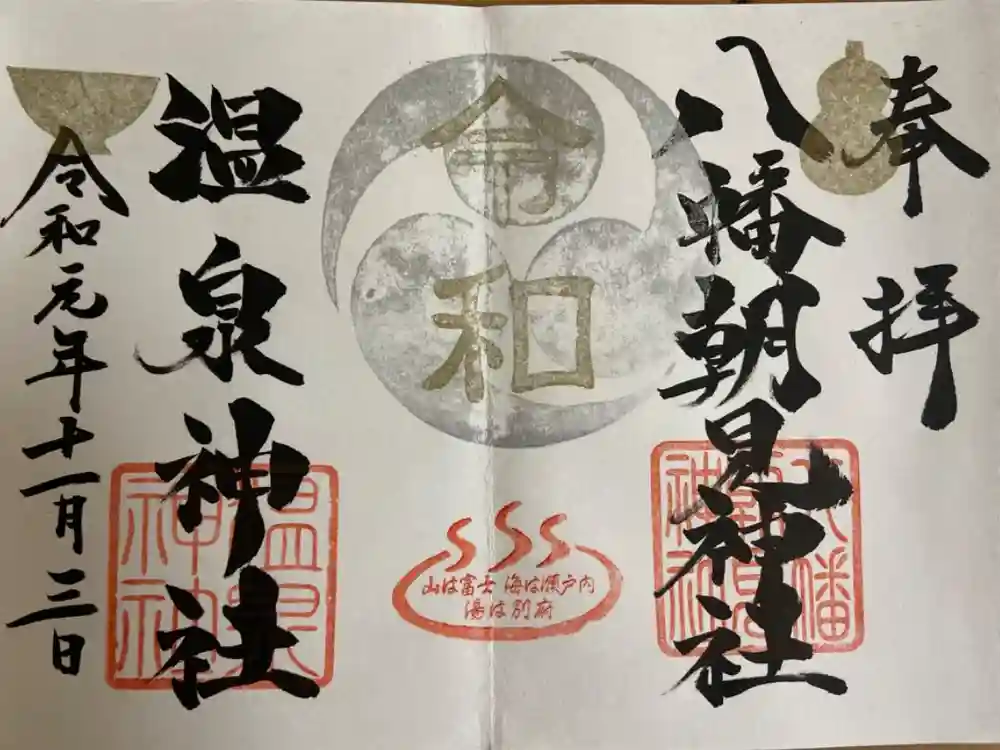 奉拝
八幡朝見神社
八幡朝見神社
令和
山は富士 海は瀬戸内
湯は別府
温泉神社
温泉神社
令和元年十一月三日